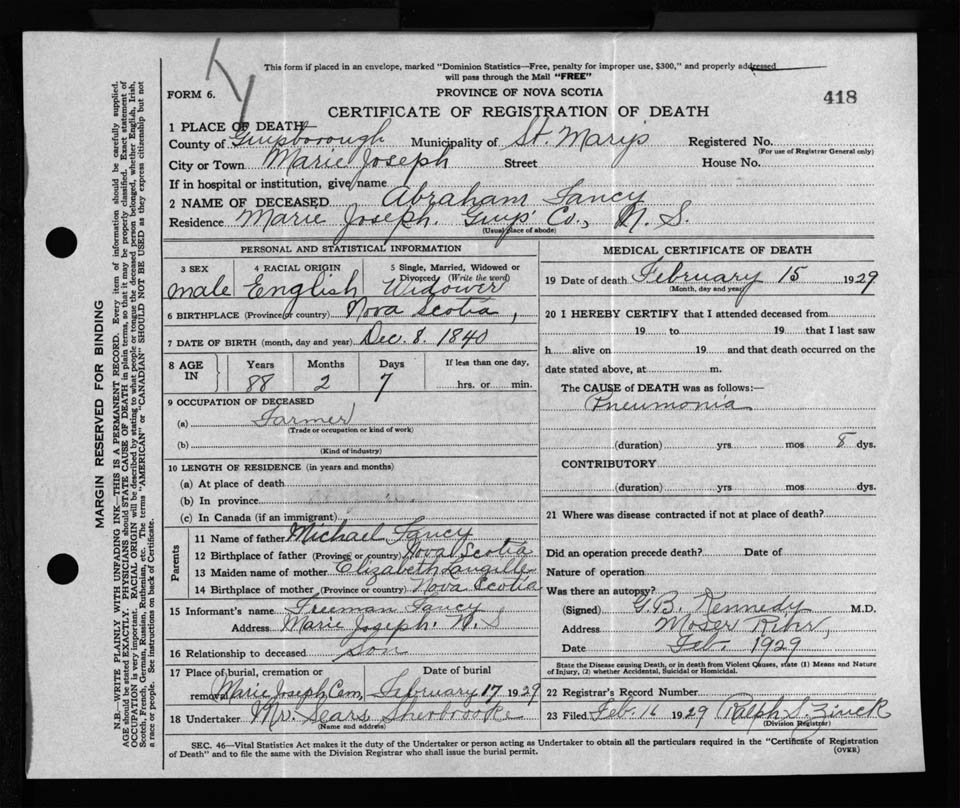 This form if placed in an envelope, marked "Dominion Statistics—Free, penalty for improper use, $300," and properly addressed
will pass through the Mail "FREE"
FORM 6.
PROVINCE OF NOVA SCOTIA
418
CERTIFICATE OF REGISTRATION OF DEATH
1 PLACE OF DEATH
County of Guysborough Municipality of St. Marys Registered No.
(For use of Registrar General only)
City or Town Marie Joseph Street House No.
If in hospital or institution, give name
2 NAME OF DECEASED Abraham Fancy
Residence Marie Joseph. Guys' Co., N. S.
(Usual place of abode)
PERSONAL AND STATISTICAL INFORMATION
3 SEX 4 RACIAL ORIGIN 5 Single, Married, Widowed or
Divorced (Write the word)
male English Widower
6 BIRTHPLACE (Province or country) Nova Scotia,
7 DATE OF BIRTH (month, day and year) Dec. 8. 1840
8 AGE IN Years Months Days If less than one day,
88 2 7 hrs. or min.
9 OCCUPATION OF DECEASED
(a) Farmer
(Trade or occupation or kind of work)
(b)
(Kind of industry)
10 LENGTH OF RESIDENCE (in years and months)
(a) At place of death
(b) In province
(c) In Canada (if an immigrant)
Parents
11 Name of father Michael Fancy
12 Birthplace of father (Province or country) Nova Scotia
13 Maiden name of mother Elizabeth Langille
14 Birthplace of mother (Province or country) Nova Scotia
15 Informant's name Freeman Fancy
Address Marie Joseph. N. S
16 Relationship to deceased son
17 Place of burial, cremation or Date of burial
removal Marie Joseph Cem, February 17 1929
18 Undertaker Mr. Sears Sherbrooke
(Name and address)
MEDICAL CERTIFICATE OF DEATH
19 Date of death February 15 1929
(Month, day and year)
20 I HEREBY CERTIFY that I attended deceased from
19 to 19 that I last saw
h alive on 19 and that death occurred on the
date stated above, at m.
The CAUSE of DEATH was as follows:—
Pneumonia
(duration) yrs mos 8 dys.
CONTRIBUTORY
(duration) yrs mos dys.
21 Where was disease contracted if not at place of death?
Did an operation precede death? Date of
Nature of operation
Was there an autopsy?
(Signed) G.B. Kennedy M.D.
Address Moser Rihr,
Date Feb. 1929
State the Disease causing Death, or in death from Violent Causes, state (1) Means and Nature
of Injury, (2) whether Accidental, Suicidal or Homicidal.
22 Registrar's Record Number
23 Filed Feb. 16 1929 Ralph S. Zinck
(Division Registrar)
SEC. 46—Vital Statistics Act makes it the duty of the Undertaker or person acting as Undertaker to obtain all the particulars required in the "Certificate of Registration
of Death" and to file the same with the Division Registrar who shall issue the burial permit.
(OVER)
MARGIN RESERVED FOR BINDING
N.B.—WRITE PLAINLY WITH UNFADING INK—THIS IS A PERMANENT RECORD. Every item of information should be carefully supplied.
AGE should be stated EXACTLY. PHYSICIANS should STATE CAUSE OF DEATH in plain terms, so that it may be properly classified. Exact statement of
OCCUPATION is very important. RACIAL ORIGIN will be described by stating to what people or tongue the deceased person belonged, whether English, Irish,
Scotch, French, German, Russian, Ruthenian, etc. The terms "AMERICAN" or "CANADIAN" SHOULD NOT BE USED as they express citizenship but not
a race or people. See instructions on back of Certificate.